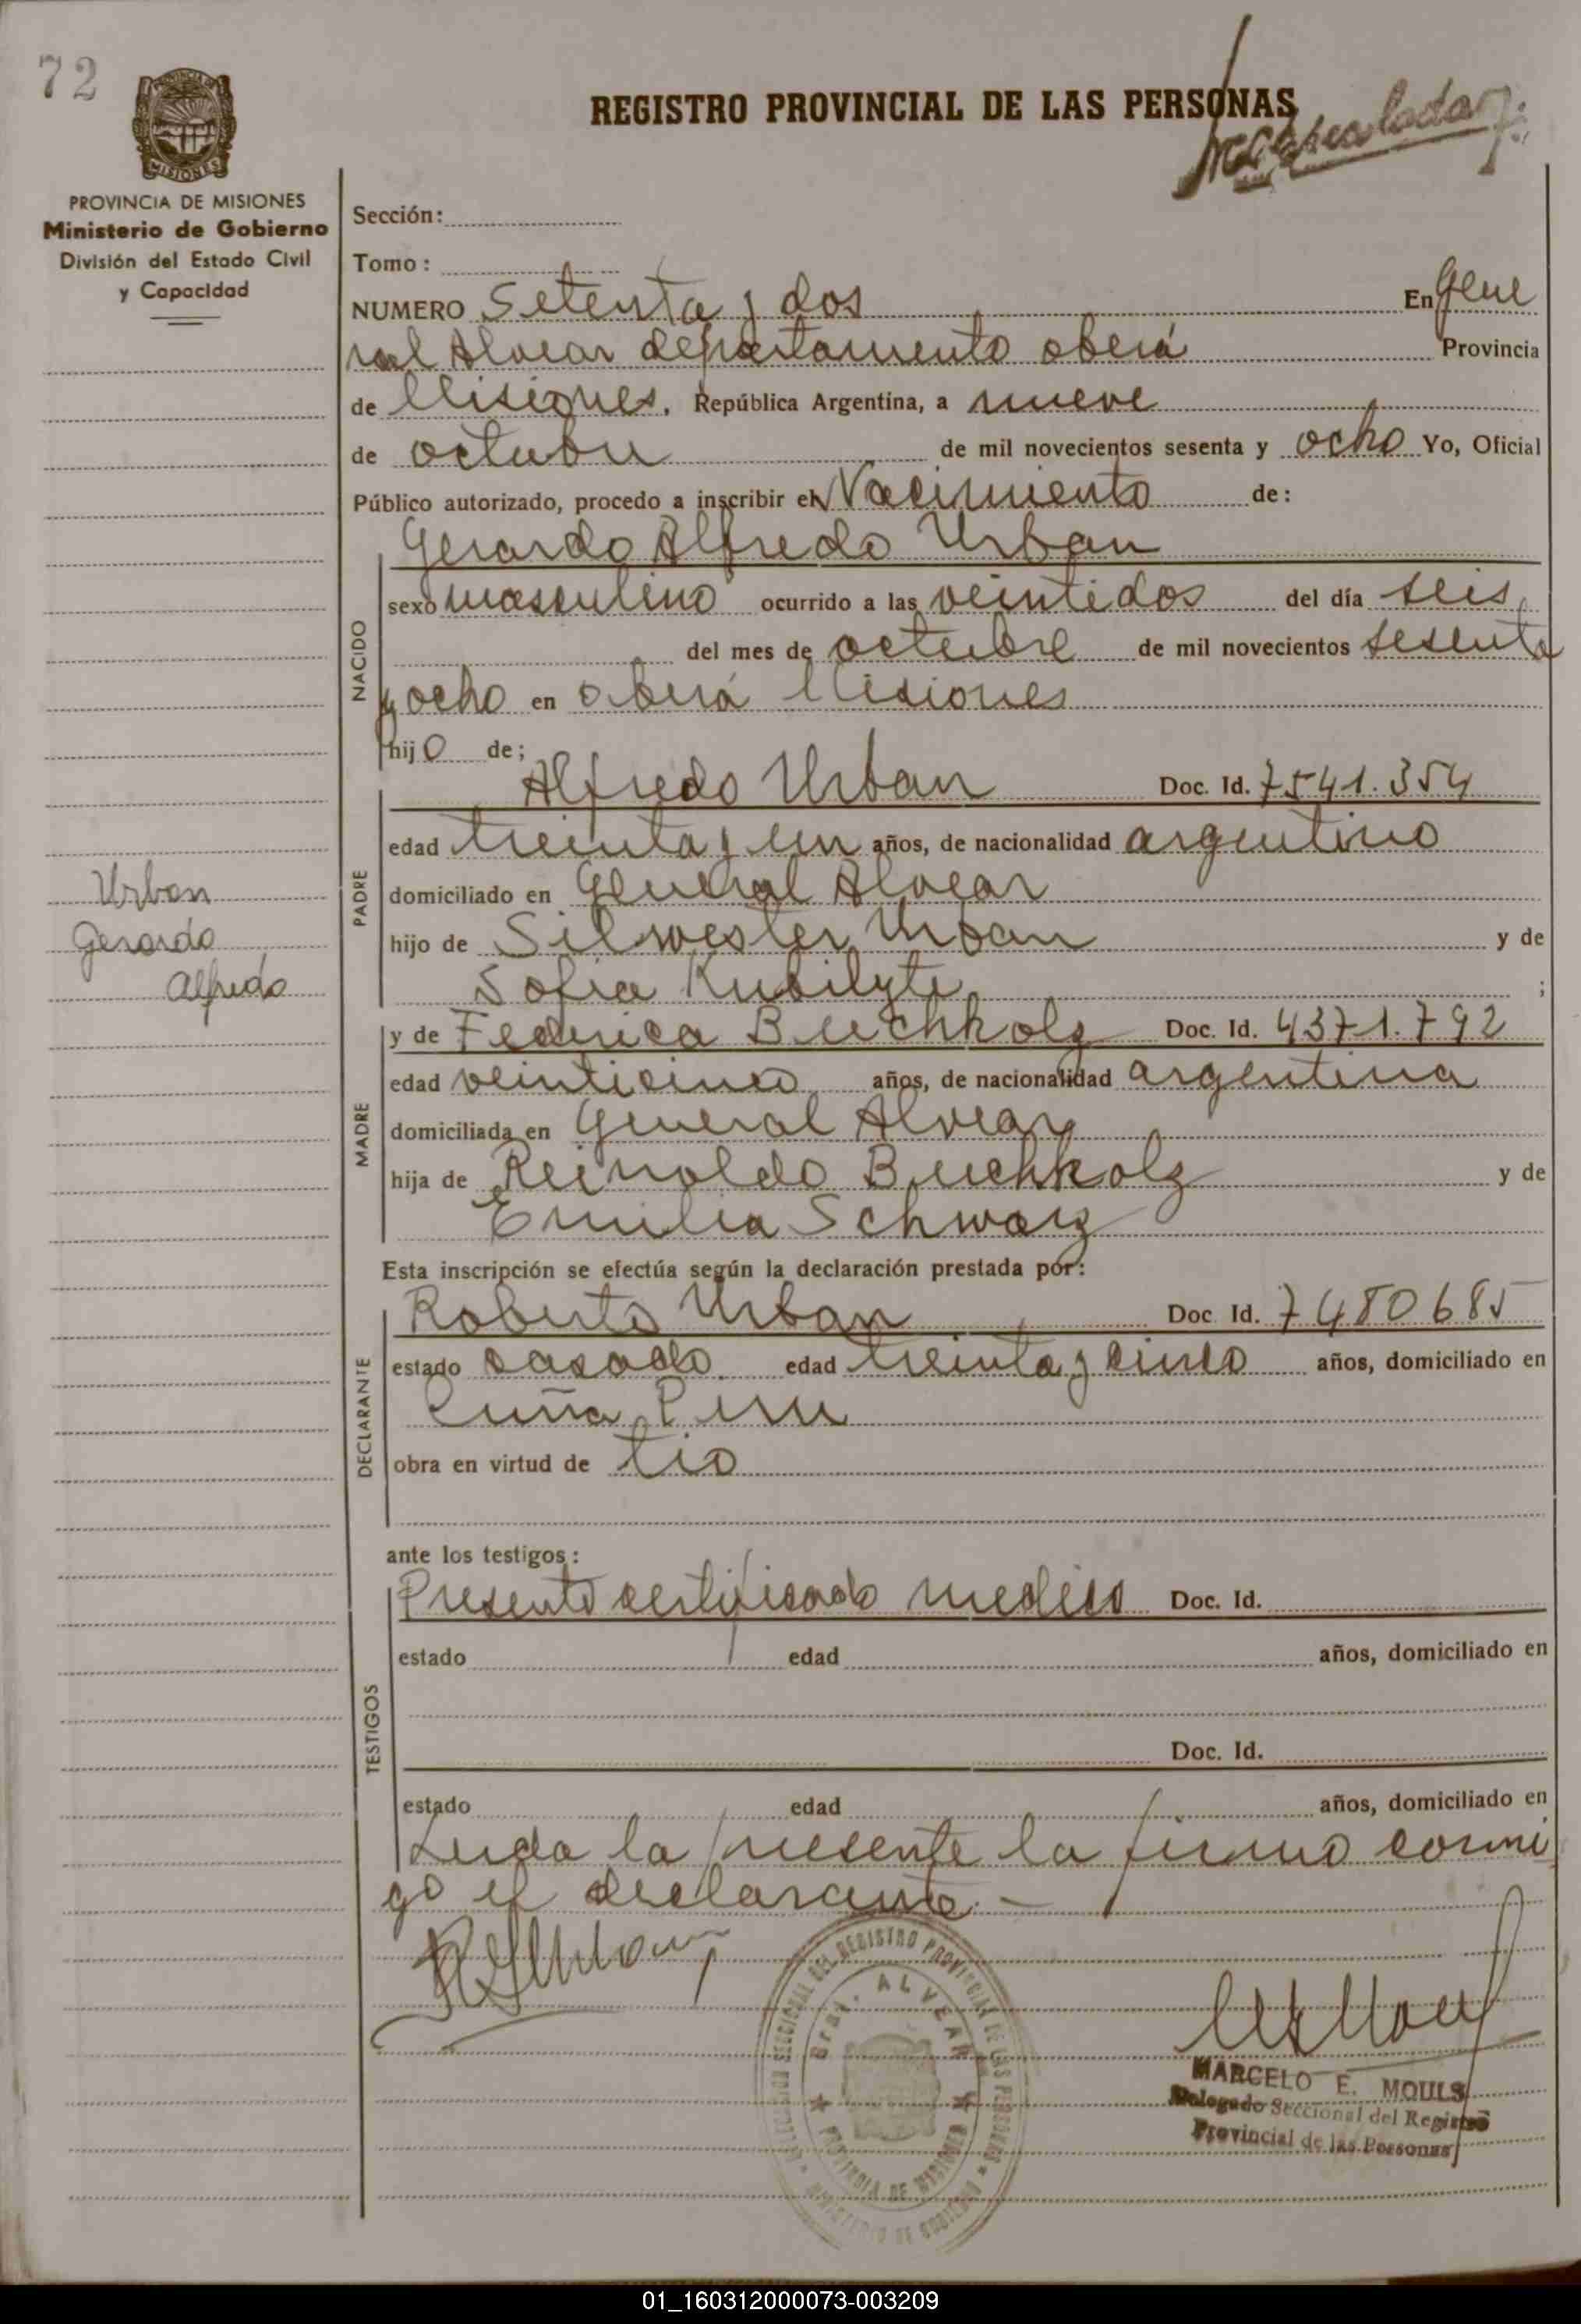 72
REGISTRO PROVINCIAL DE LAS PERSONAS
MISIONES
PROVINCIA DE MISIONES
Ministerio de Gobierno
División del Estado Civil
y Capacidad
Sección:
Tomo:
NUMERO Setenta y dos En Gene
ral Alvear departamento oberá Provincia
de Misiones, República Argentina, a nueve
de octubre de mil novecientos sesenta y ocho Yo, Oficial
Público autorizado, procedo a inscribir el Nacimiento de:
Gerardo Alfredo Urban
NACIDO
sexo masculino ocurrido a las veintidos del día seis
del mes de octubre de mil novecientos sesenta
y ocho en oberá Misiones
hijo de;
Alfredo Urban Doc. Id. 7541.354
PADRE
edad treinta y un años, de nacionalidad argentino
domiciliado en General Alvear
hijo de Silwester Urban y de
Sofia Kubilyte ;
Urban
Gerardo
Alfredo
y de Federica Buchholz Doc. Id. 4371.792
MADRE
edad veinticinco años, de nacionalidad argentina
domiciliada en General Alvear
hija de Reinoldo Buchholz y de
Emilia Schwarz
Esta inscripción se efectúa según la declaración prestada por:
Roberto Urban Doc. Id. 7480685
DECLARANTE
estado casado edad treinta y cinco años, domiciliado en
Cuña Piru
obra en virtud de tio
ante los testigos:
Presento certificado medico Doc. Id.
TESTIGOS
estado edad años, domiciliado en
Doc. Id.
estado edad años, domiciliado en
Leida la presente la firma conmi
go el declarante.-
Gral. ALVEAR
PROVINCIA DE MISIONES
MINISTERIO DE GOBIERNO
MARCELO E. MOULS
Delegado Seccional del Registro
Provincial de las Personas
01_160312000073-003209